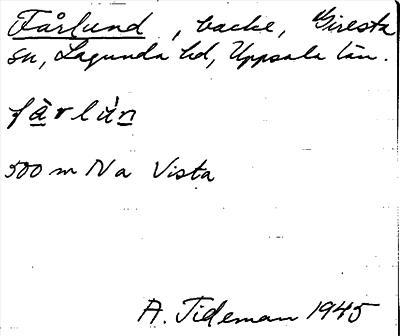 Fårlund, backe, Giresta
sn, Lagunda hd, Uppsala län.
fà̲rlùn̲
500 m N a Vista
A. Tideman 1945